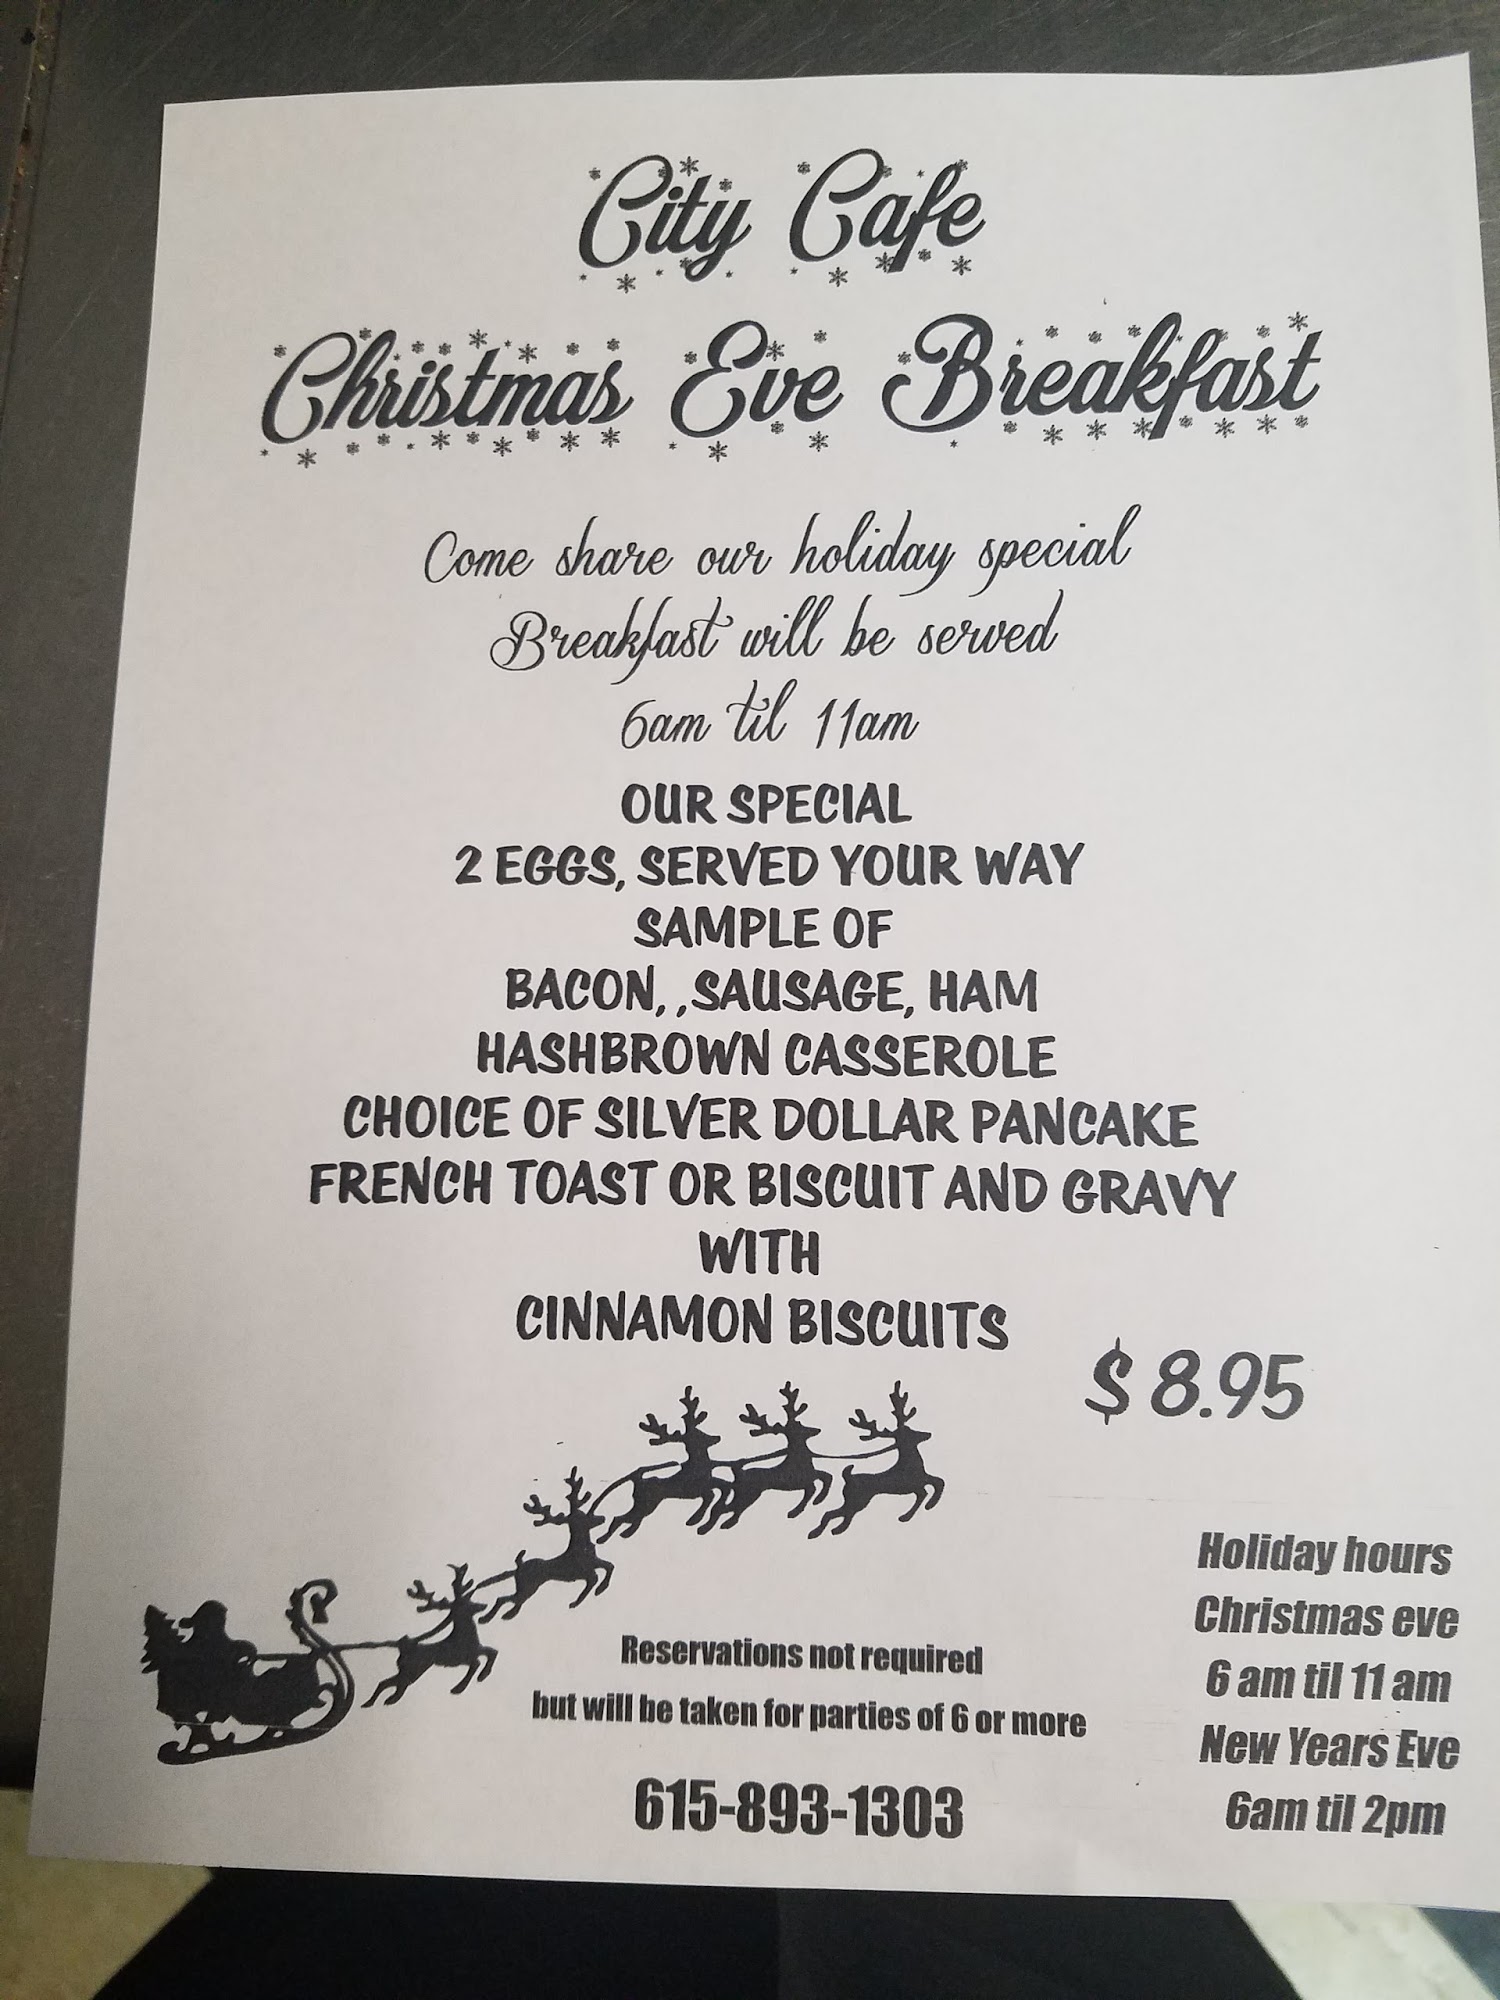 City Cafe
Christmas Eve Breakfast
Come share our holiday special
Breakfast will be served
6am til 11am
OUR SPECIAL
2 EGGS, SERVED YOUR WAY
SAMPLE OF
BACON, ,SAUSAGE, HAM
HASHBROWN CASSEROLE
CHOICE OF SILVER DOLLAR PANCAKE
FRENCH TOAST OR BISCUIT AND GRAVY
WITH
CINNAMON BISCUITS
$ 8.95
Reservations not required
but will be taken for parties of 6 or more
615-893-1303
Holiday hours
Christmas eve
6 am til 11 am
New Years Eve
6am til 2pm